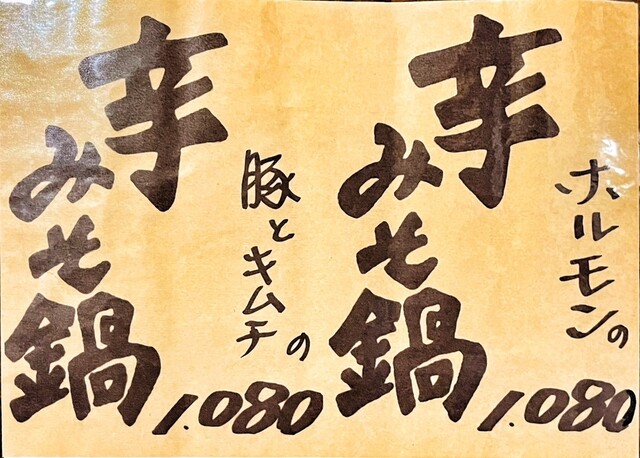 ホルモンの
辛
みそ鍋
1.080
豚とキムチの
辛
みそ鍋
1.080